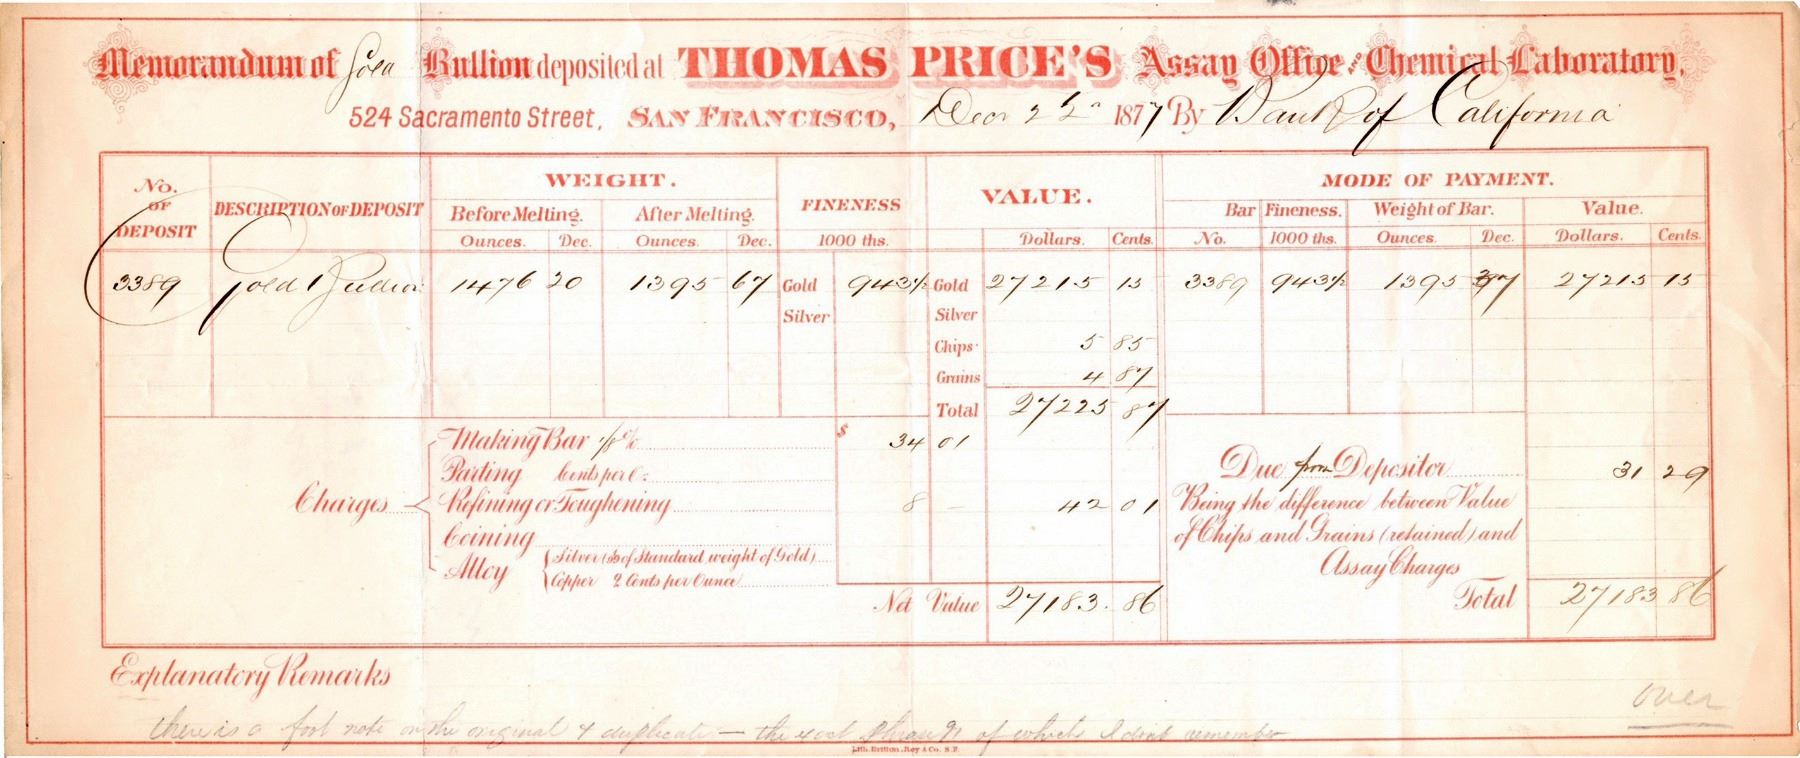 Memorandum of Gold Bullion deposited at THOMAS PRICE'S Assay Office AND Chemical Laboratory,
524 Sacramento Street, SAN FRANCISCO, 1877 By Bank of California
No. OF DEPOSIT
DESCRIPTION OF DEPOSIT
WEIGHT.
Before Melting. After Melting.
Ounces. Dec. Ounces. Dec.
FINENESS
1000 ths.
VALUE.
Dollars. Cents.
MODE OF PAYMENT.
Bar Fineness. Weight of Bar. Value.
No. 1000 ths. Ounces. Dec. Dollars. Cents.
3389 Gold Bullion 1476 20 1395 67 Gold 943½ Gold 27215 15 3389 943½ 1395 27215 15
Silver Silver
Chips 5 85
Grains 4 87
Total 27225 87
Charges
Making Bar ⅛% $ 34 01
Parting Cents per
Refining or Toughening 8 – 42 01
Coining
Alloy
Silver ( of Standard weight of Gold)
Copper 2 Cents per Ounce
Net Value 27183. 86
Due from Depositor 31 29
Being the difference between Value
of Chips and Grains (retained) and
Assay Charges
Total 27183 86
Explanatory Remarks
over
there is a foot note on the original & duplicate — the exact phrase of which I dont remember
Lith. Britton, Rey & Co. S.F.